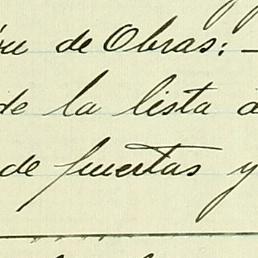 de Obras:
de la lista
de puertas y